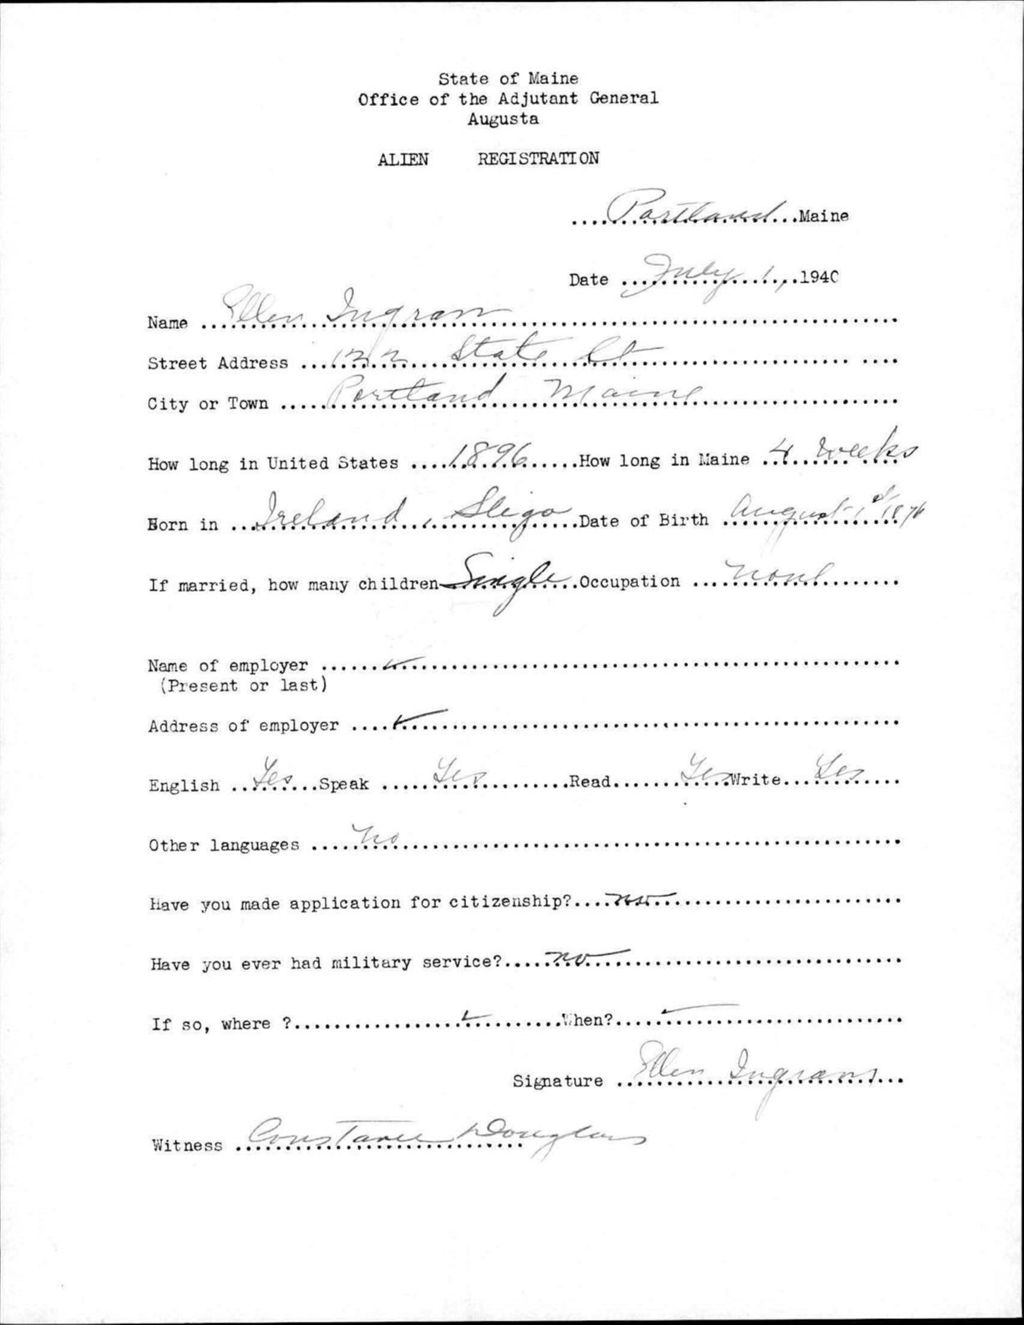 State of Maine
Office of the Adjutant General
Augusta
ALIEN REGISTRATION
....Portland...Maine
Date ...July 1,..1940
Name ...Ellen Ingram...
Street Address ...122 State St...
City or Town ...Portland Maine...
How long in United States ....1896.....How long in Maine ..4 Weeks
Born in ...Ireland, Sligo...Date of Birth ..August 1st 1876
If married, how many children Single..Occupation ....none.......
Name of employer ...........
(Present or last)
Address of employer ...........
English ..Yes...Speak .....Yes..........Read.......Yes.Write...Yes....
Other languages .....no...........
Have you made application for citizenship?....no...........
Have you ever had military service?.....no...........
If so, where ?....................When?...........
Signature ...Ellen Ingram...
Witness ...Constance Douglas